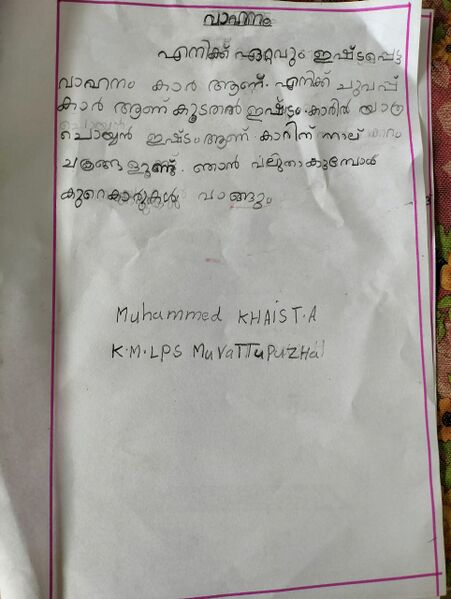 വാഹനം
എനിക്ക് ഏറ്റവും ഇഷ്ടപ്പെട്ട
വാഹനം കാർ ആണ്. എനിക്ക് ചുവപ്പ്
കാർ ആണ് കൂടതൽ ഇഷ്ടം. കാറിൽ യാത്ര
ചൊയ്യൻ ഇഷ്ടം ആണ്. കാറിന് നാല്
ചക്രങ്ങളുണ്ട്. ഞാൻ വലുതാകുമ്പോൾ
കുറെകാറുകൾ വാങ്ങും
Muhammed KHAIS T.A
K.M.LPS MuvaTTupuzha